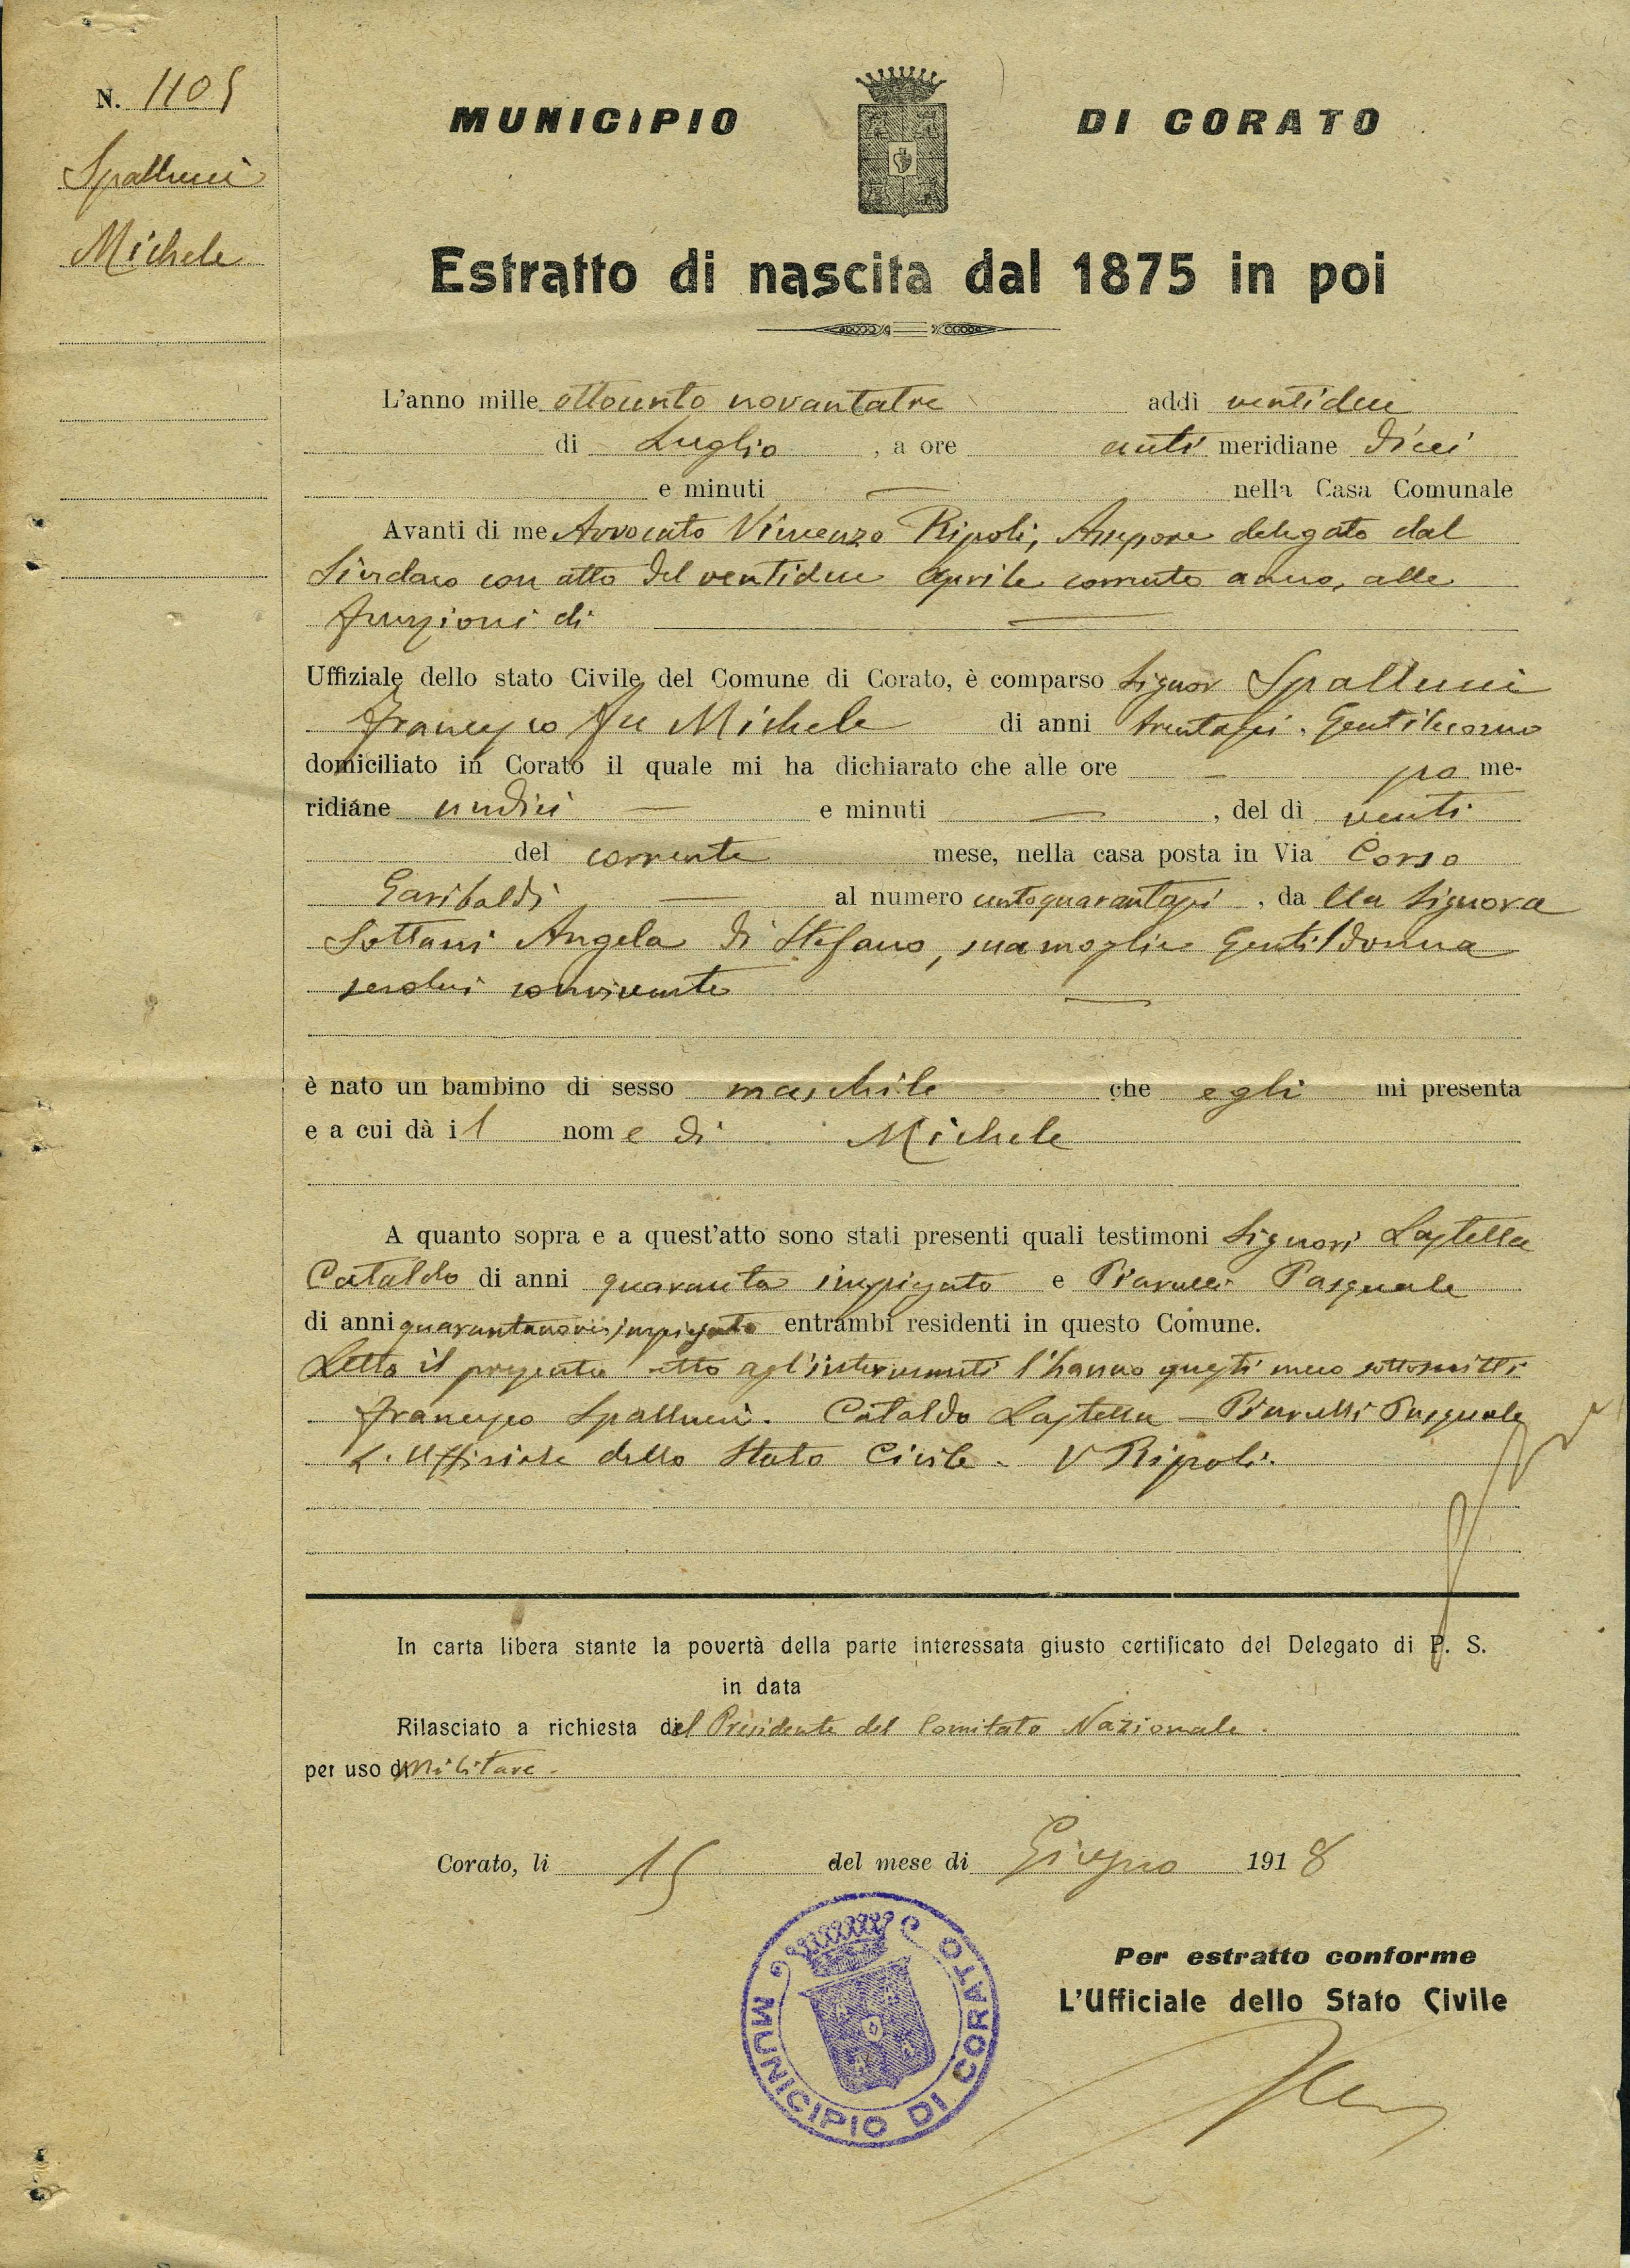 N. 1105
Spallucci
Michele
MUNICIPIO DI CORATO
Estratto di nascita dal 1875 in poi
L'anno mille ottocento novantatre addì ventidue
di Luglio, a ore anti meridiane dieci
e minuti — nella Casa Comunale
Avanti di me Avvocato Vincenzo Ripoli, Assessore delegato dal
Sindaco con atto del ventidue Aprile corrente anno, alle
funzioni di —
Uffiziale dello stato Civile del Comune di Corato, è comparso Signor Spallucci
Francesco fu Michele di anni trentasei, Gentiluomo
domiciliato in Corato il quale mi ha dichiarato che alle ore — po me-
ridiane undici — e minuti —, del dì venti
del corrente mese, nella casa posta in Via Corso
Garibaldi — al numero centoquarantasei, da lla Signora
Sottani Angela di Stefano, sua moglie Gentildonna
seco lui convivente —
è nato un bambino di sesso maschile che egli mi presenta
e a cui dà il nome di Michele
A quanto sopra e a quest'atto sono stati presenti quali testimoni Signori Lastella
Cataldo di anni quaranta impiegato e Piarulli Pasquale
di anni quarantanove impiegato entrambi residenti in questo Comune.
Letto il presente atto agl'intervenuti l'hanno questi meco sottoscritto
Francesco Spallucci. Cataldo Lastella — Piarulli Pasquale
L'Uffiziale dello Stato Civile - V Ripoli.
In carta libera stante la povertà della parte interessata giusto certificato del Delegato di P. S.
in data
Rilasciato a richiesta del Presidente del Comitato Nazionale.
per uso di Militare.
Corato, li 15 del mese di Giugno 1918
Per estratto conforme
L'Ufficiale dello Stato Civile
MUNICIPIO DI CORATO